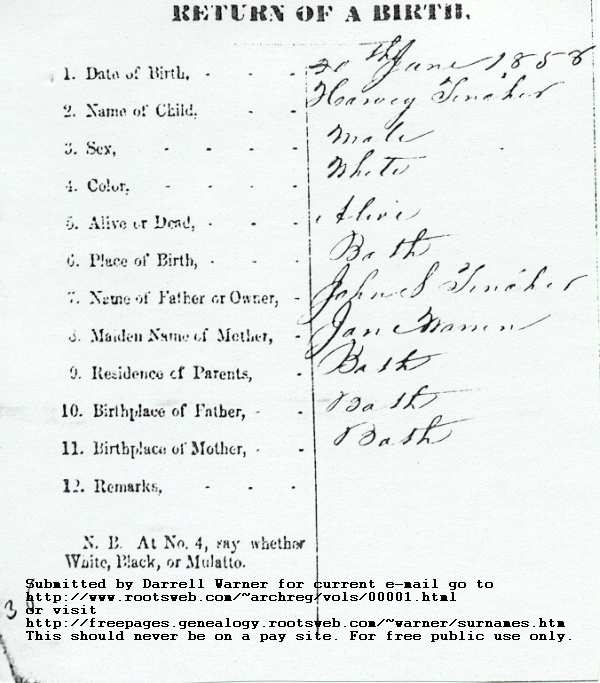 RETURN OF A BIRTH.
1. Date of Birth, - - - th June 1858
2. Name of Child, - - Harvey Tinsher
3. Sex, - - - - Male
4. Color, - - - - White
5. Alive or Dead, - - - Alive
6. Place of Birth, - - - Bath
7. Name of Father or Owner, - John S Tinsher
8. Maiden Name of Mother, - Jane
9. Residence of Parents, - Bath
10. Birthplace of Father, - - Bath
11. Birthplace of Mother, - - Bath
12. Remarks, - - -
N. B. At No. 4, say whether
White, Black, or Mulatto.
Submitted by Darrell Warner for current e-mail go to
http://www.rootsweb.com/~archreg/vols/00001.html
or visit
http://freepages.genealogy.rootsweb.com/~warner/surnames.htm
This should never be on a pay site. For free public use only.